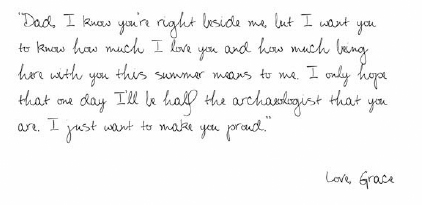 "Dad, I know you're right beside me, but I want you
to know how much I love you and how much being
here with you this summer means to me. I only hope
that one day I'll be half the archaeologist that you
are. I just want to make you proud."
Love, Grace